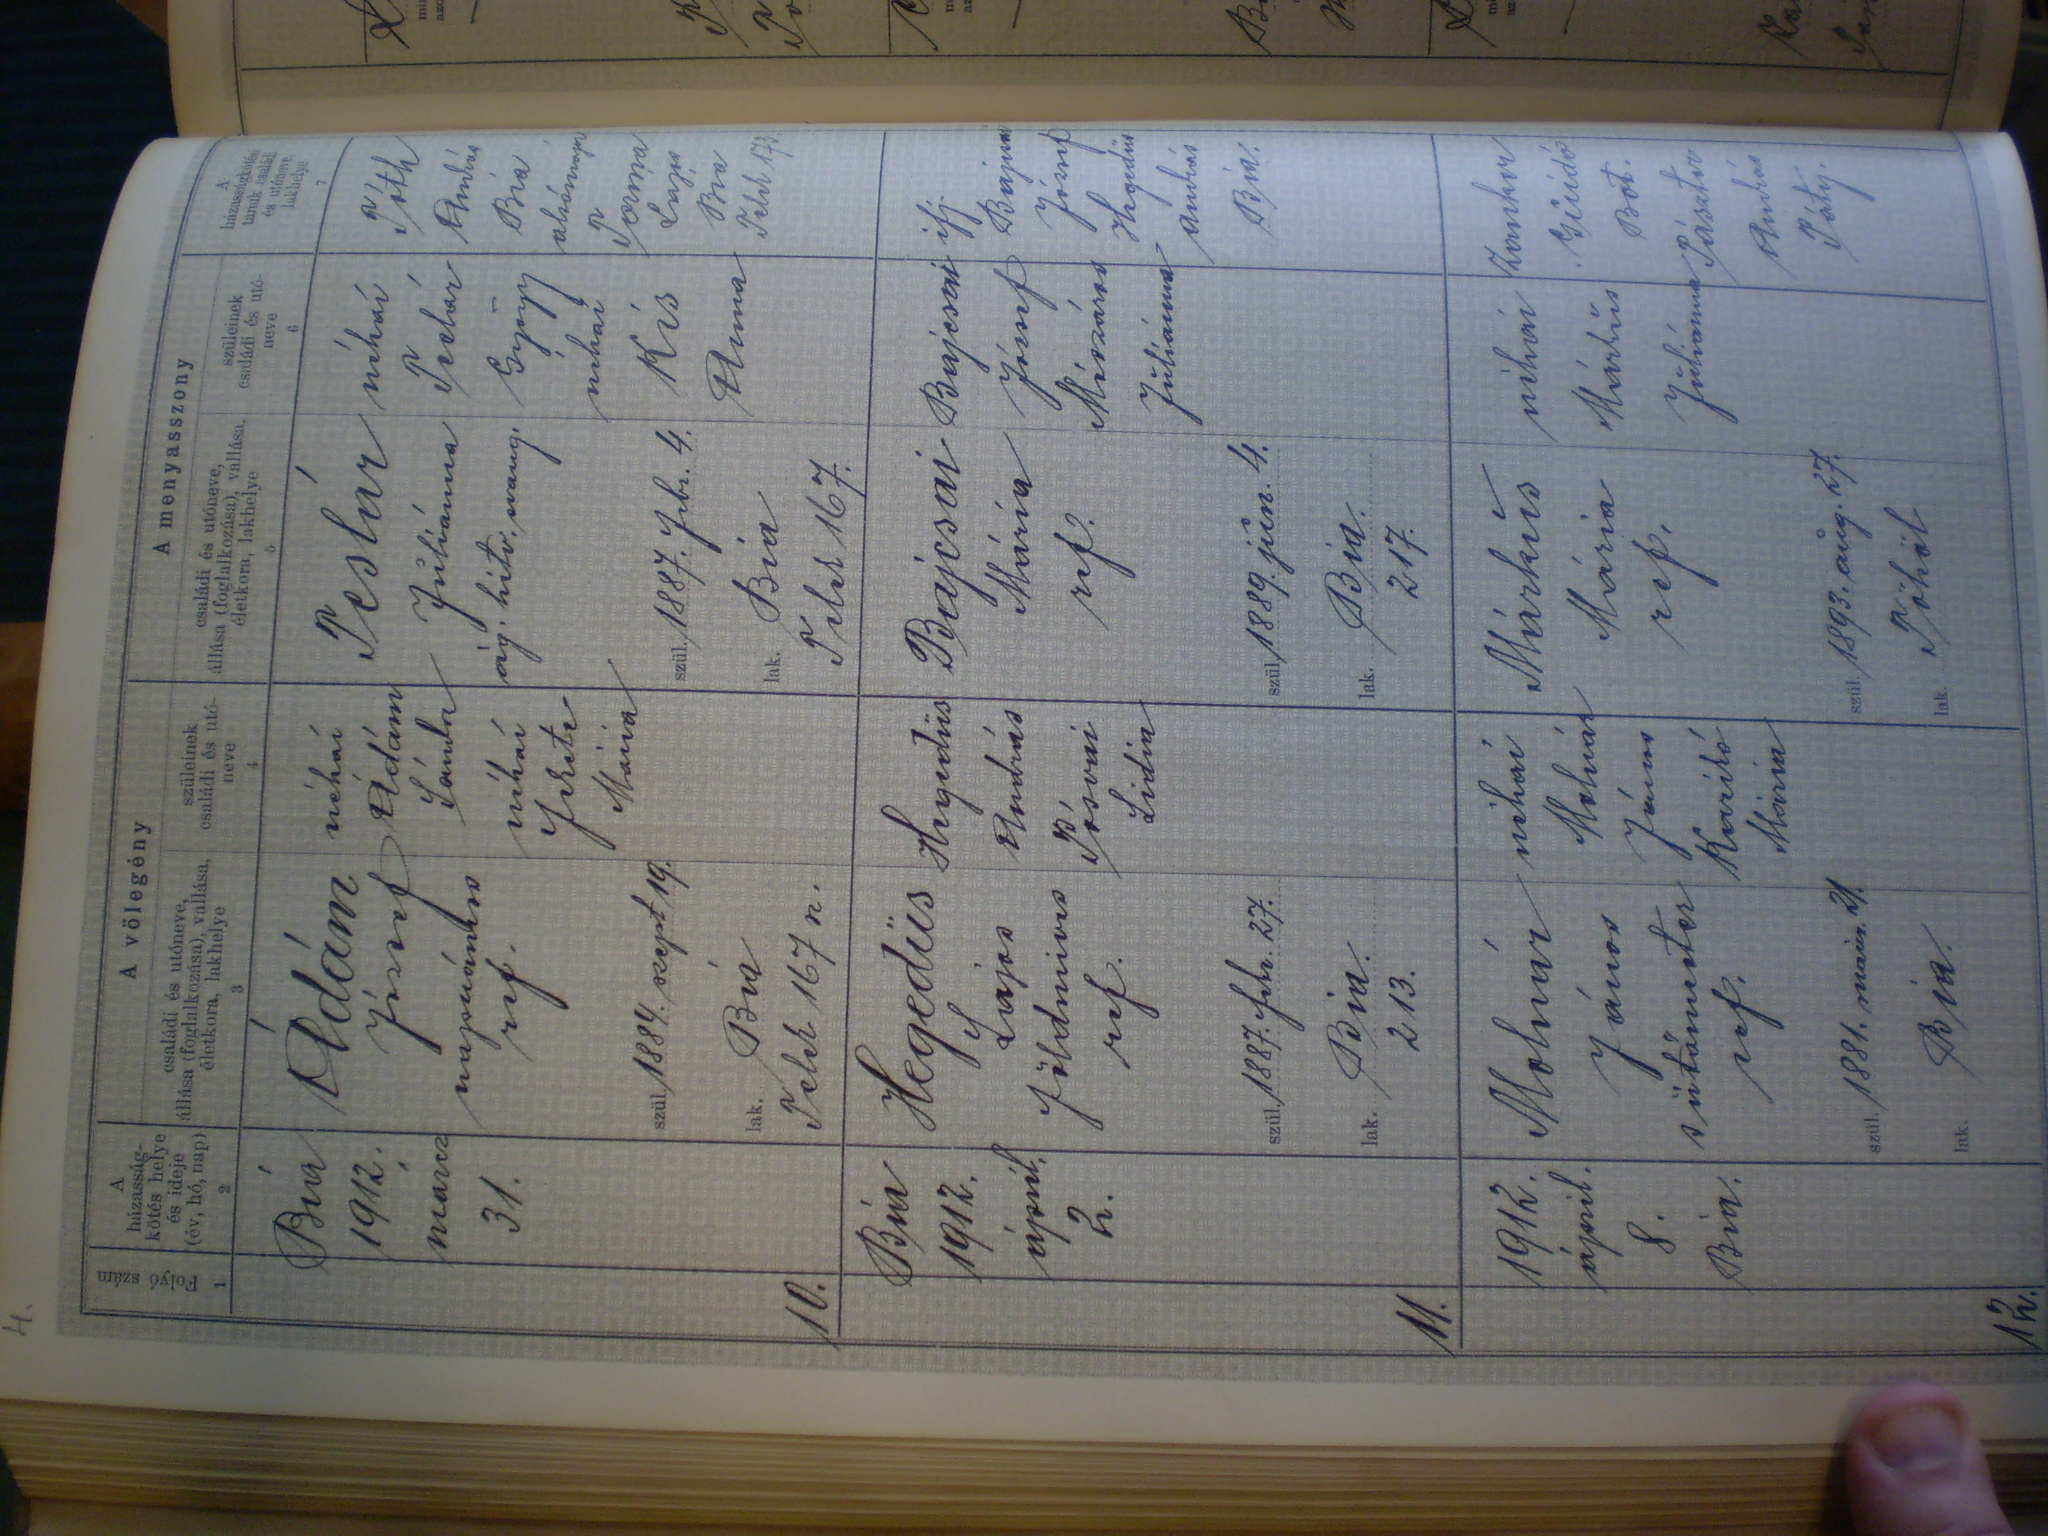 4.
Folyó szám
1
A házasság-
kötés helye
és ideje
(év, hó, nap)
2
A vőlegény
családi és utóneve,
állása (foglalkozása), vallása,
életkora, lakhelye
3
szüleinek
családi és utó-
neve
4
A menyasszony
családi és utóneve,
állása (foglalkozása), vallása,
életkora, lakhelye
5
szüleinek
családi és utó-
neve
6
A
házasságkötési
tanuk családi
és utóneve,
lakhelye
7
10.
Bia
1912.
marcz
31.
Ádám
József
napszámos
ref.
szül. 1884. szept 19.
lak. Bia
Telek 167 n.
néhai
Ádám
Sándor
néhai
Fekete
Mária
Teslár
Juliánna
ág. hitv. evang.
szül. 1887. febr. 4.
lak. Bia
Telek 167.
néhai
Teslár
György
néhai
Kis
Anna
Tóth
András
Bia
Lajos
Bia
Telek 173
11.
Bia
1912.
ápril.
2.
Hegedüs
Lajos
földmives
ref.
szül. 1887. febr. 27.
lak. Bia.
213.
Hegedüs
András
Pósvai
Lidia
Bajcsai
Mária
ref.
szül. 1889. jún. 4.
lak. Bia.
217.
Bajcsai
József
Mészáros
Juliánna
ifj.
József
Hegedüs
András
Bia.
12.
1912.
ápril.
8.
Bia.
Molnár
János
sütőmester
ref.
szül. 1881. márcz. 21.
lak. Bia.
néhai
Molnár
János
Karikó
Mária
Márkus
Mária
ref.
szül. 1893. aug. 27.
lak.
néhai
Márkus
Juliánna
Bot.
Pásztor
András
Páty.